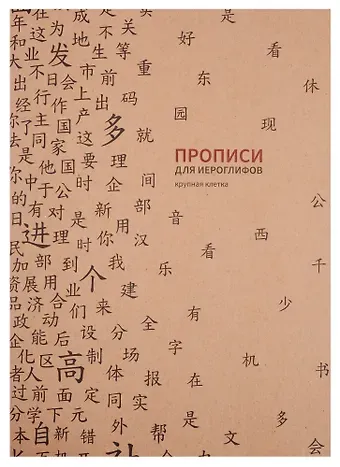 年 在 这 成 不 关 实 是
和 这 为 地 生 等 好 看
大 业 发 市 前 重 东 休
出 不 日 会 上 出 码 园 现
经 行 作 产 多 就
你 了 主 国 这 理
去 同 家 要 间
ПРОПИСИ
ДЛЯ ИЕРОГЛИФОВ
крупная клетка
是 他 国 时 企 部
你 中 于 公 新 音 公
的 有 对 是 用 汉 西
日 进 理 时 你 看 千
民 部 到 个 我 乐
加 展 用 业 们 建 有 少
资 济 合 来 全
品 动 设 分 字
政 能 后 场 机 书
企 区 制
化 人 高 体 报 在
者 前 面 定 同 是 多
过 学 下 元 外
分 自 新 错 帮 文 会
本